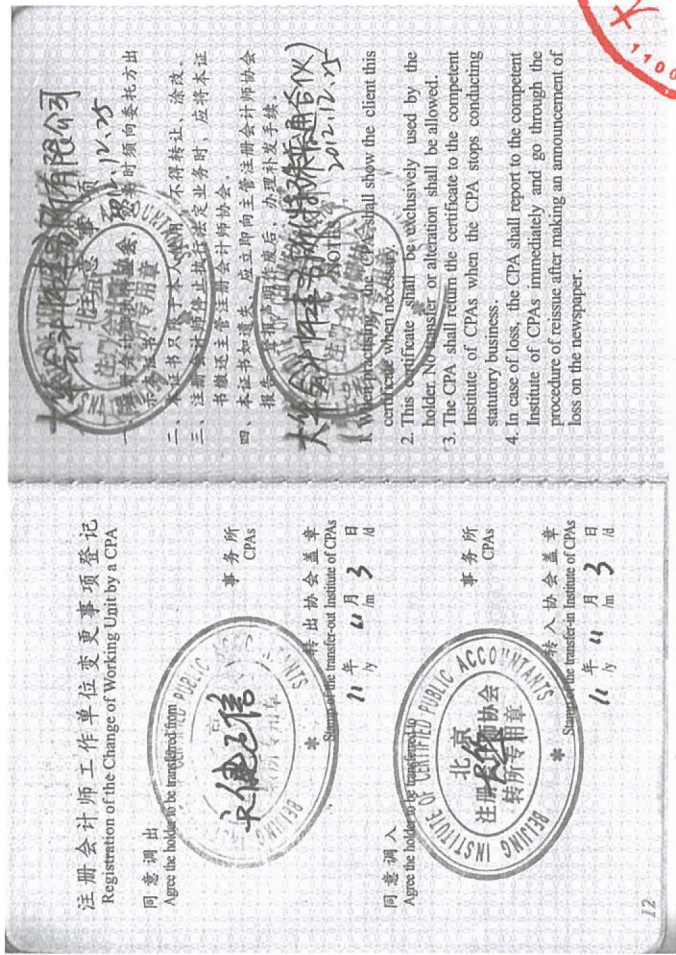 注册会计师工作单位变更事项登记
Registration of the Change of Working Unit by a CPA
同意调出
Agree the holder to be transferred from
事务所
CPAs
转出协会盖章
Stamp of the transfer-out Institute of CPAs
11 年 11 月 3 日
/y /m /d
同意调入
Agree the holder to be transferred to
事务所
CPAs
BEIJING INSTITUTE OF CERTIFIED PUBLIC ACCOUNTANTS
北京
注册会计师协会
转所专用章
转入协会盖章
Stamp of the transfer-in Institute of CPAs
11 年 11 月 3 日
/y /m /d
12
大华会计师事务所有限公司
12.25
注意事项
一、注册会计师执行业务时须向委托方出
示本证书。
二、本证书只限于本人使用,不得转让、涂改。
三、注册会计师停止执行法定业务时,应将本证
书缴还主管注册会计师协会。
四、本证书如遗失,应立即向主管注册会计师协会
报告,登报声明作废后,办理补发手续。
大华会计师事务所(特殊普通合伙)
2012.12.25
NOTES
1. When practising, the CPA shall show the client this
certificate when necessary.
2. This certificate shall be exclusively used by the
holder. No transfer or alteration shall be allowed.
3. The CPA shall return the certificate to the competent
Institute of CPAs when the CPA stops conducting
statutory business.
4. In case of loss, the CPA shall report to the competent
Institute of CPAs immediately and go through the
procedure of reissue after making an announcement of
loss on the newspaper.
1100